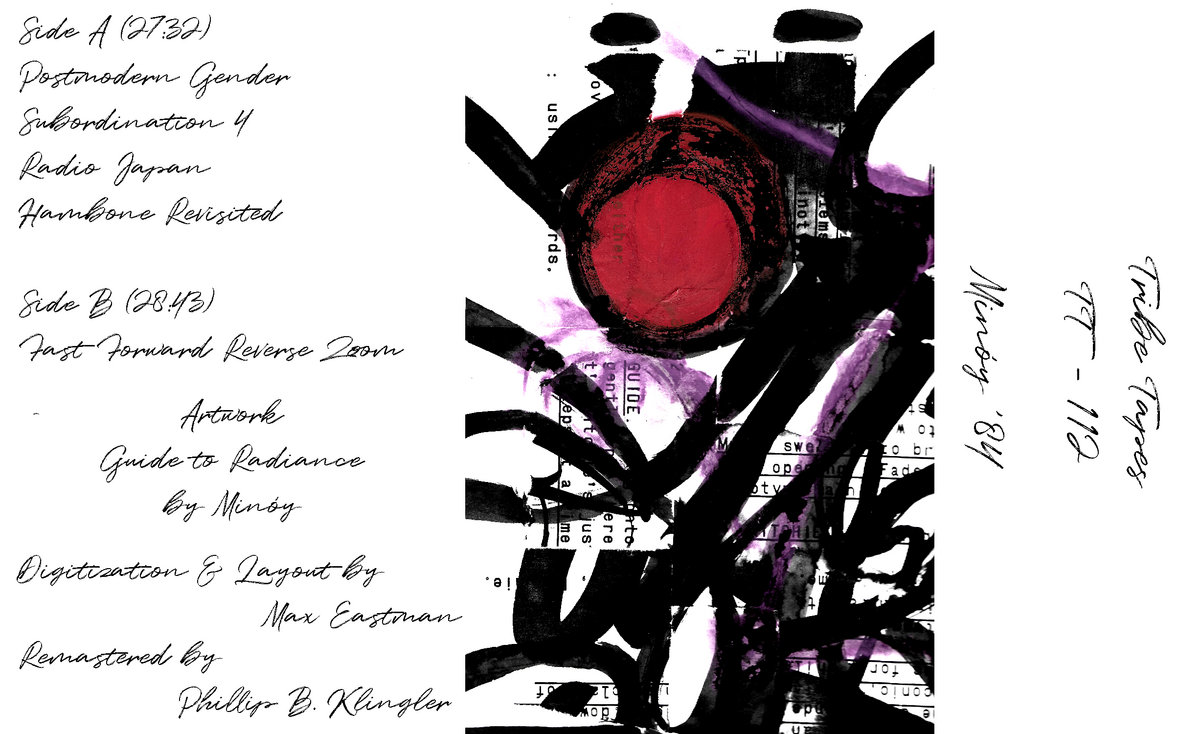 Side A (27:32)
Postmodern Gender
Subordination 4
Radio Japan
Hambone Revisited
Side B (28:43)
Fast Forward Reverse Zoom
Artwork
Guide to Radiance
by Minóy
Digitization & Layout by
Max Eastman
Remastered by
Phillip B. Klingler
rds.
GUIDE.
Minóy '84
TT - 112
Tribe Tapes